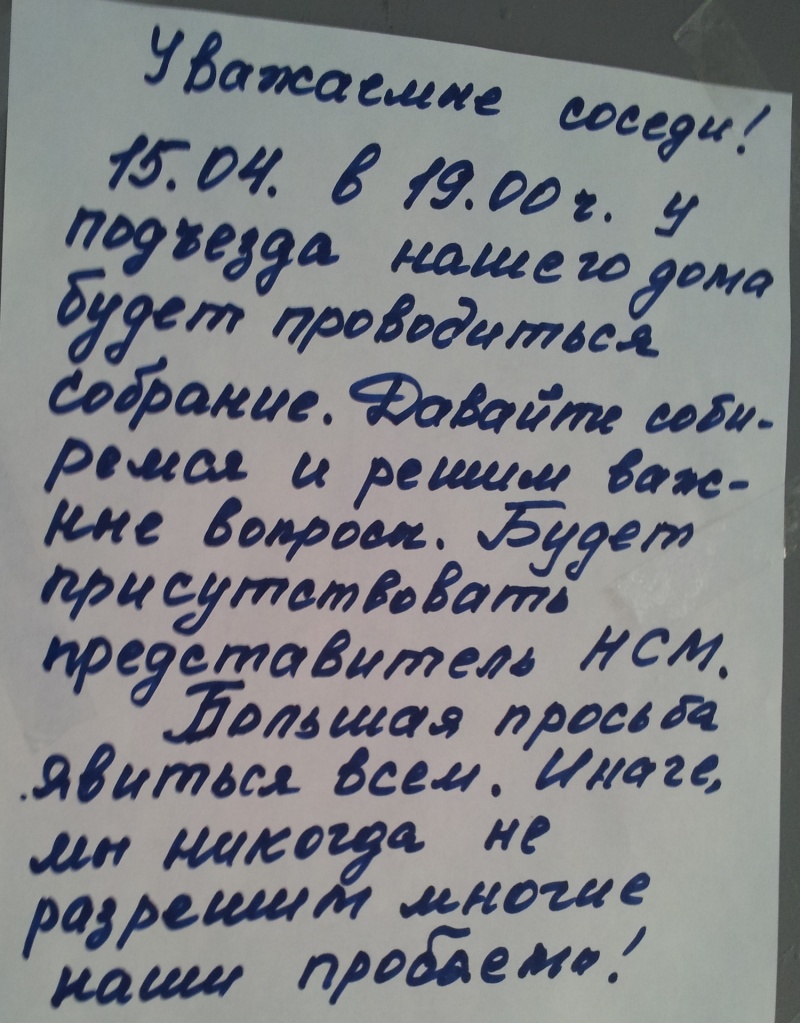 Уважаемые соседи!
15.04. в 19.00ч. у
подъезда нашего дома
будет проводиться
собрание. Давайте соби-
ремся и решим важ-
ные вопросы. Будет
присутствовать
представитель НСМ.
Большая просьба
явиться всем. Иначе,
мы никогда не
разрешим многие
наши проблемы!